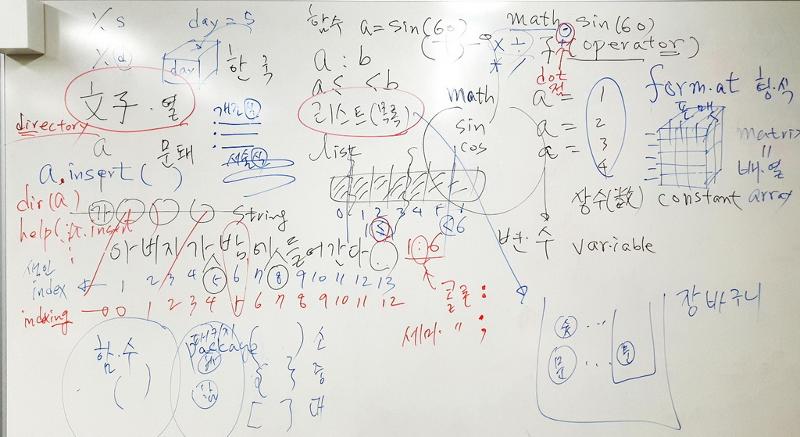 % s
day = 5
함수 a = sin(60)
math. sin(60)
% d
day
한국
a : b
(operator)
a ≤ < b
dot
점
form.at 형.식
文子.열
리스트(목록)
math
a = 1
directory
sin
a = 2
matrix
a
문태
list
cos
a = 3
"
배.열
a.insert( )
4
장수(數) constant array
dir(a)
String
0 1 2 3 4 5 6
help( :a.insert
1 : 6
아버지가 밤에 들어간다.
변.수 variable
색인
index
1 2 3 4 5 6 7 8 9 10 11 12 13
콜론 :
indexing
0 1 2 3 4 5 6 7 8 9 10 11 12
세미. " ;
장바구니
함.수
패키지
package
( )
( ) 소
{ } 중
[ ] 대